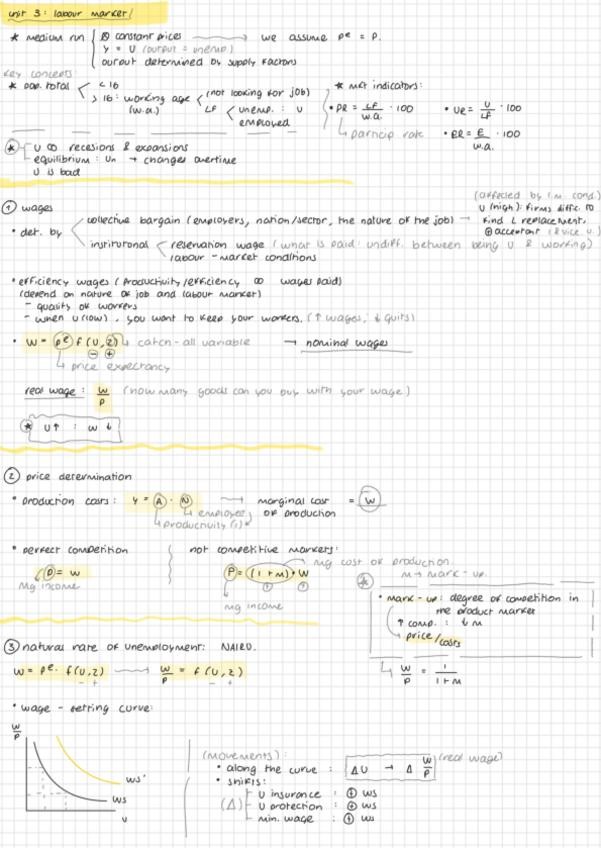 unit 3: labour market/
* medium run ⊗ constant prices → we assume pe = p.
Y = U (output = unemp)
output determined by supply factors
key concepts:
* pop. total < 16
> 16: working age (w.a.) (not looking for job)
LF unemp. : U
employed
* mkt indicators:
• PR = LF/w.a. · 100 • UR = U/LF · 100
particip rate • ER = E/w.a. · 100
* U ∞ recesions & expansions
equilibrium : Un → changes overtime
U is bad
① wages
• det. by collective bargain (employers, nation/sector, the nature of the job) →
(affected by l.m. cond.)
U (high): firms diffic. to
find L replacement,
⊕ acceptant (& vice v.)
institutional reservation wage (what is paid: undiff. between being U & working)
labour - market conditions
• efficiency wages (productivity/efficiency ∞ wages paid)
(depend on nature of job and labour market)
- quality of workers
- when U (low), you want to keep your workers. (↑ wages, ↓ quits)
• W = pe f (U, z) catch-all variable → nominal wages
⊖ ⊕
price expectancy
real wage : W/P (how many goods can you buy with your wage)
* U↑ : W ↓
② price determination
• production costs: Y = A · N → marginal cost of production = W
employee
productivity (1)
• perfect competition not competitive markets:
P = W P = (1 + M) · W mg cost of production
⊕ ⊕
mg income mg income
M → mark-up.
* • mark-up: degree of competition in
the product market
↑ comp. : ↓ M
price/costs
W/P = 1/1+M
③ natural rate of unemployment: NAIRU.
W = pe · f (U, z) → W/P = f (U, z)
- + - +
• wage - setting curve:
W/P
WS'
WS
U
(movements):
• along the curve : ΔU → Δ W/P (real wage)
• shifts:
(Δ) U insurance : ⊕ WS
U protection : ⊕ WS
min. wage : ⊕ WS